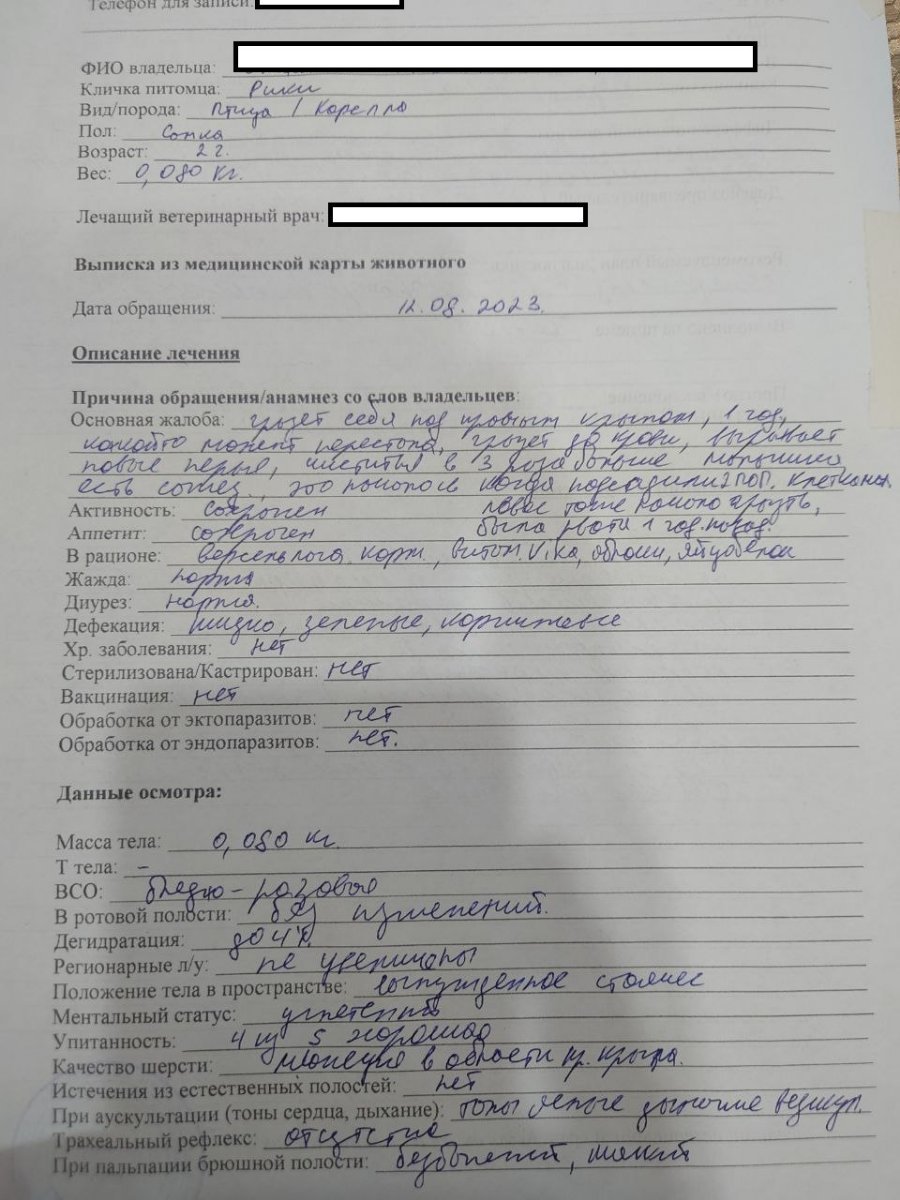 Телефон для записи:
ФИО владельца:
Кличка питомца: Рики
Вид/порода: Птица / Корелла
Пол: Самка
Возраст: 2 г.
Вес: 0,080 кг.
Лечащий ветеринарный врач:
Выписка из медицинской карты животного
Дата обращения: 12.08.2023.
Описание лечения
Причина обращения/анамнез со слов владельцев:
Основная жалоба: грызёт себя под правым крылом, 1 год,
какой-то момент перестала, грызёт до крови, вырывает
новые перья, чиститься в 3 раза больше
есть самец, это началось когда подсадили 2 поп.
Активность: сохранен левое тоже начала грызть,
Аппетит: сохранен была рвота 1 год. назад.
В рационе: версельлага корм, витам.
Жажда: норма
Диурез: норма.
Дефекация: жидко, зеленые, коричневые
Хр. заболевания: нет
Стерилизована/Кастрирован: нет
Вакцинация: нет
Обработка от эктопаразитов: нет
Обработка от эндопаразитов: нет.
Данные осмотра:
Масса тела: 0,080 кг.
Т тела: -
ВСО: бледно-розовые
В ротовой полости: без изменений.
Дегидратация: до 4%.
Регионарные л/у: не увеличены
Положение тела в пространстве: вынужденное стоячее
Ментальный статус: угнетенный
Упитанность: 4 из 5 хорошая
Качество шерсти: в области пр. крыла.
Истечения из естественных полостей: нет
При аускультации (тоны сердца, дыхание): тоны ясные дыхание везикул.
Трахеальный рефлекс: отсутствие
При пальпации брюшной полости: безболезный, мягкий